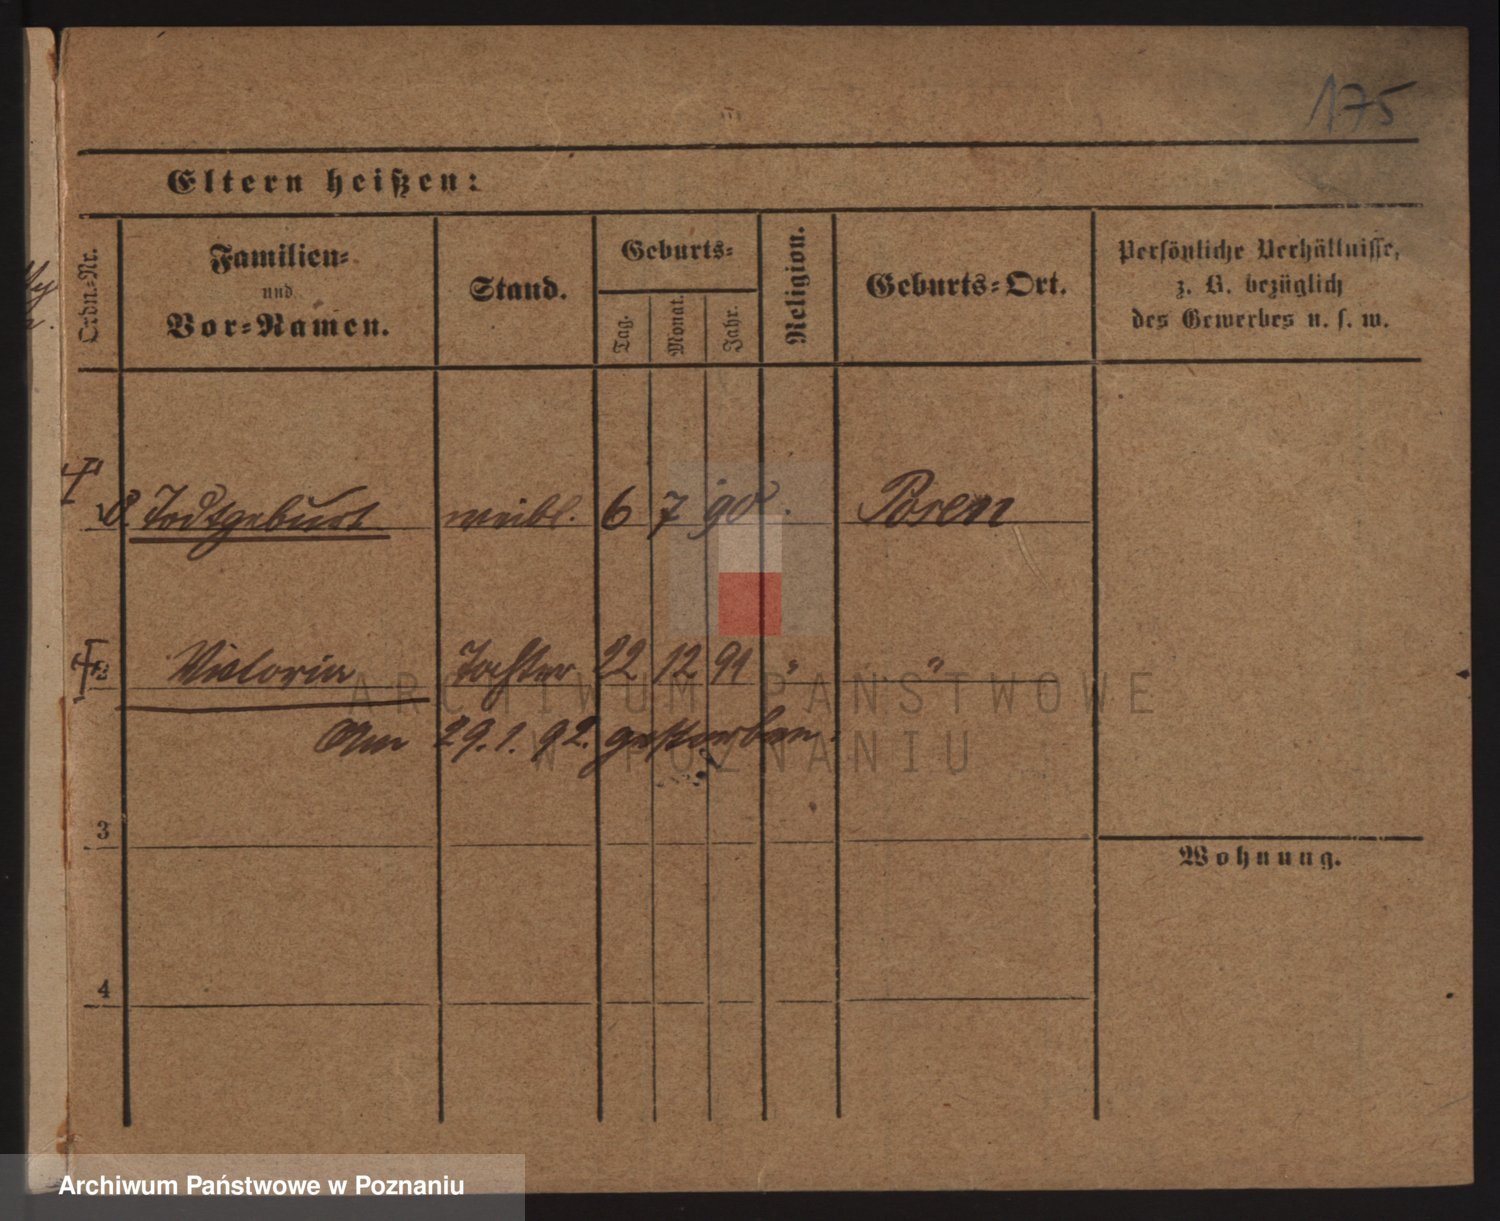 175
Eltern heißen:
Ordn.-Nr.
Familien-
und
Vor-Namen.
Stand.
Geburts-
Tag.
Monat.
Jahr.
Religion.
Geburts-Ort.
Persönliche Verhältnisse,
z. B. bezüglich
des Gewerbes u. s. w.
Todtgeburt weibl. 6 7 90. Posen
Victoria Tochter 22 12 91 " "
Am 29.1.92. gestorben.
3
Wohnung.
4
ARCHIWUM PAŃSTWOWE
W POZNANIU
Archiwum Państwowe w Poznaniu